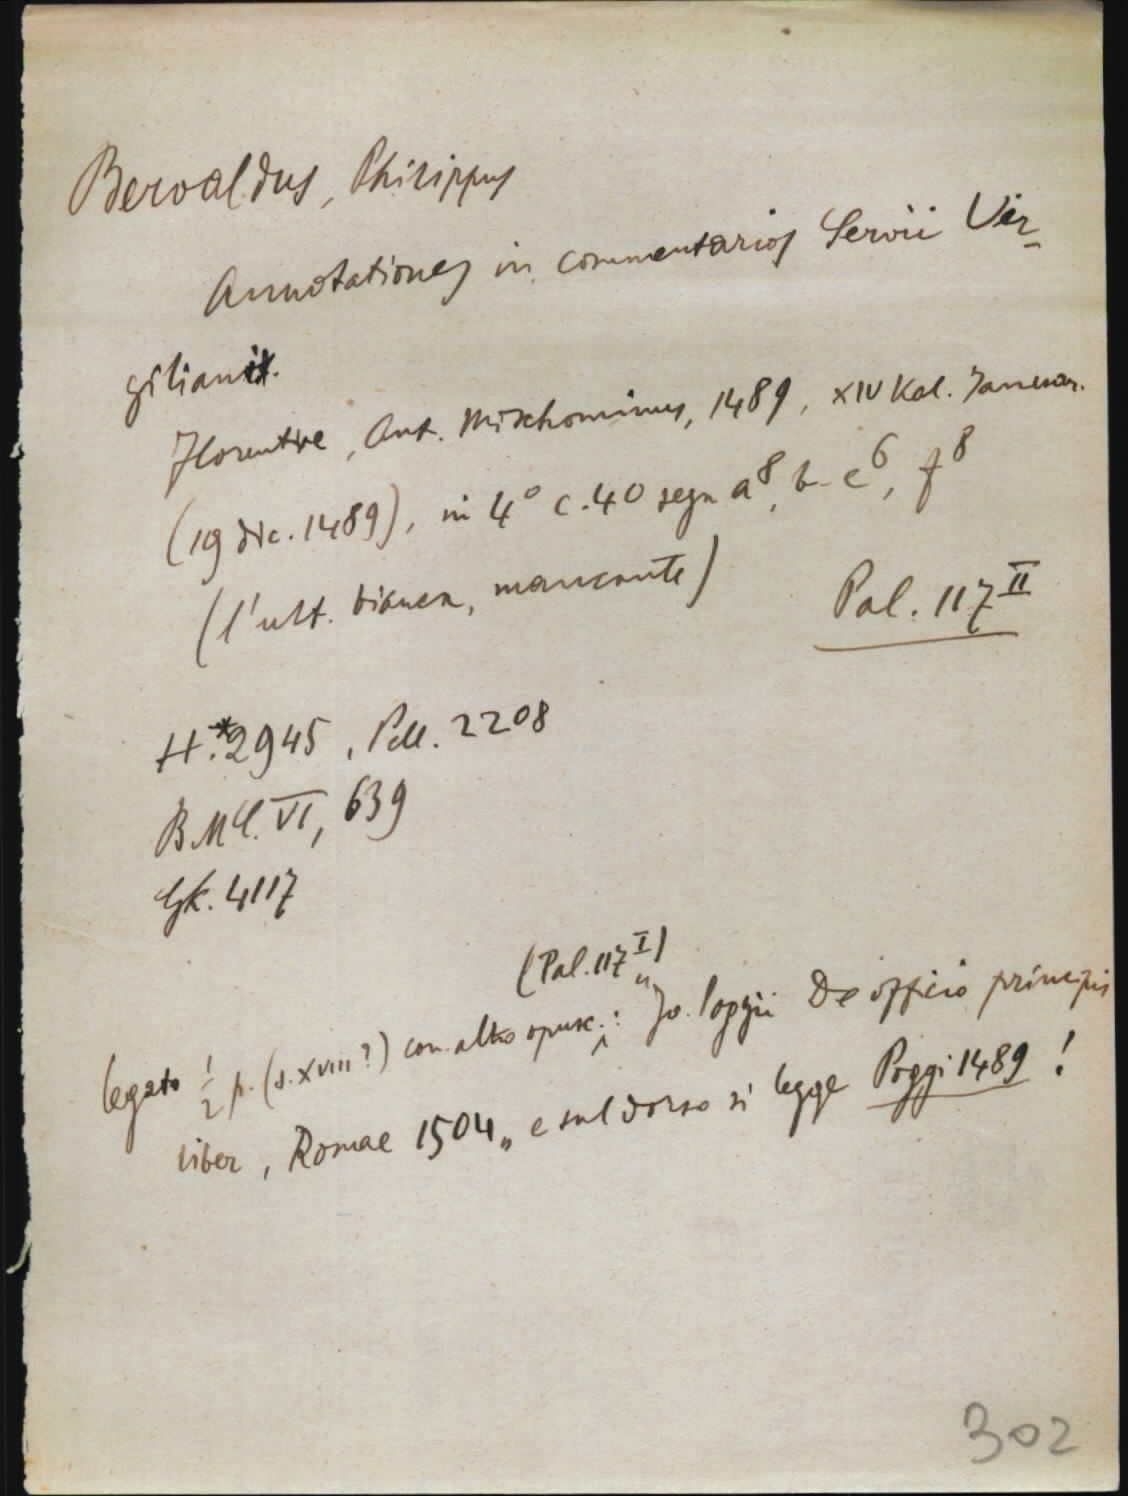 Beroaldus, Philippus
Annotationes in commentarios Servii Ver-
giliani.
Florentiae, Ant. Mischominus, 1489, XIV Kal. Januar.
(19 dic. 1489), in 4° c. 40 segn a⁸, b-e⁶, f⁸
(l'ult. bianca, mancante)
Pal. 117 II
H.*2945, Pell. 2208
BMC. VI, 639
Gk. 4117
(Pal. 117 I)
legato ½ p. (s. XVIII?) con altro opusc.: "Jo. Poggii De officio principis
liber, Romae 1504" e sul dorso si legge Poggi 1489!
302